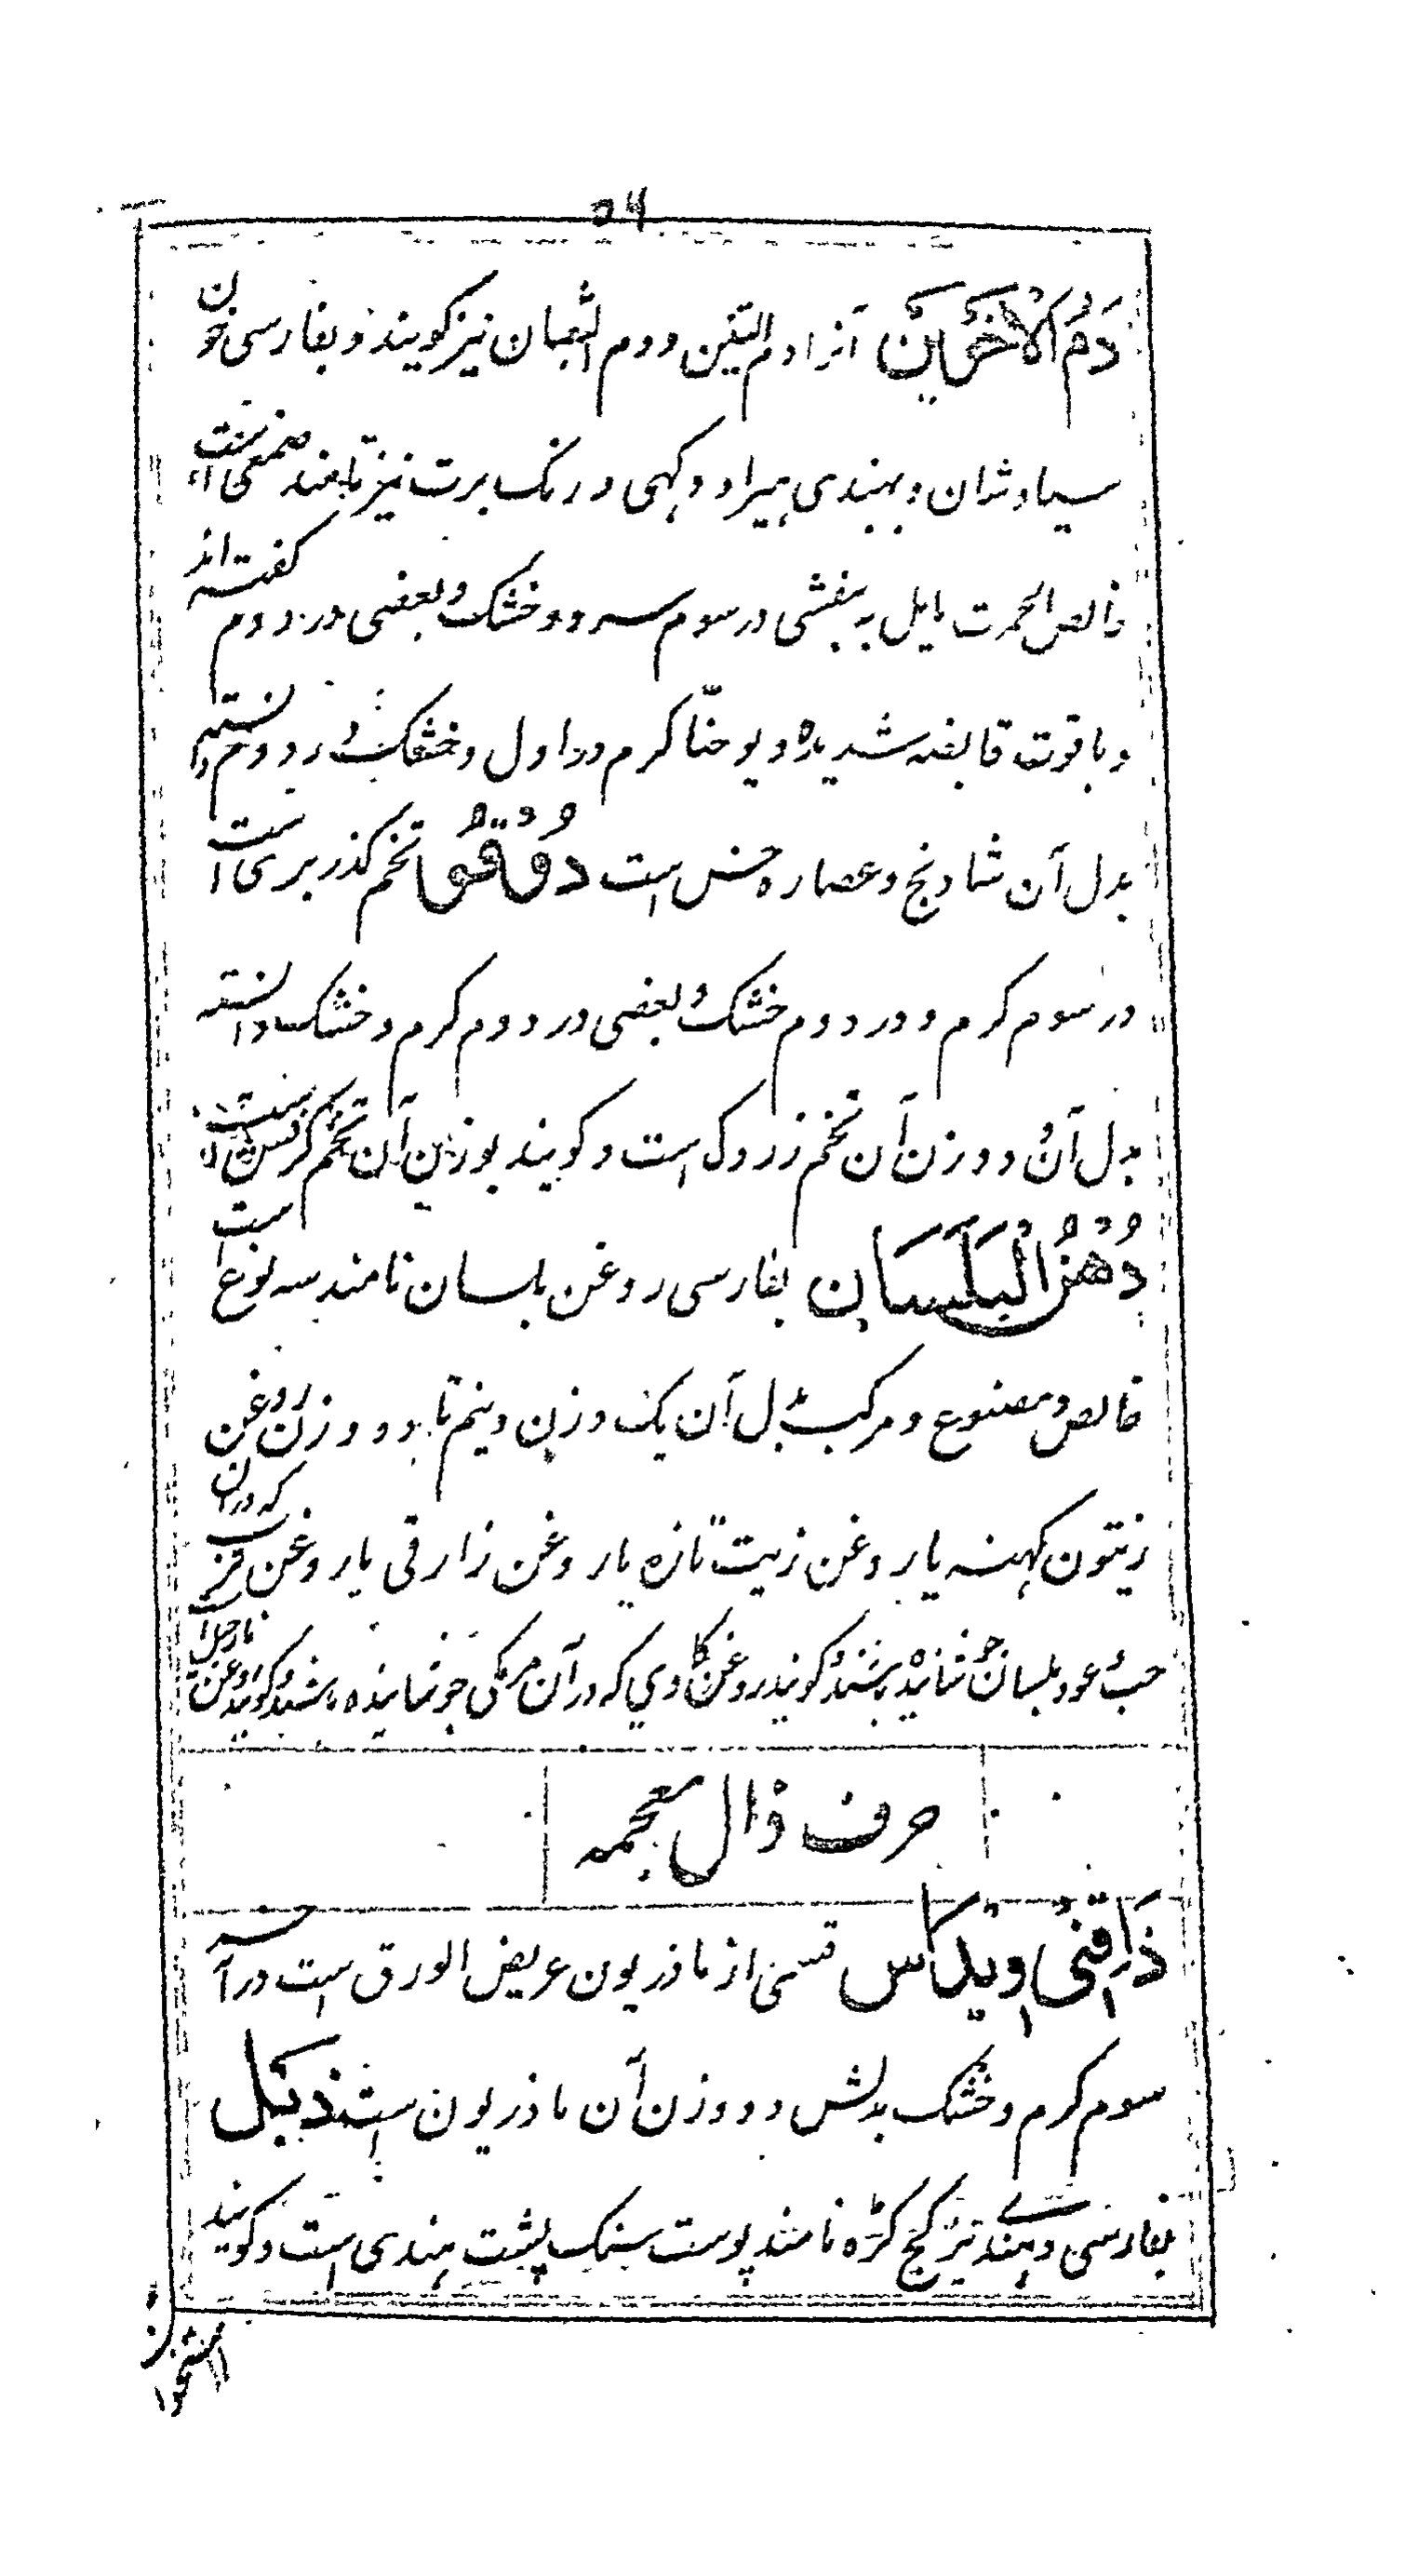 ۵۶
دَمُ الْاَخَوَیْنْ آنرا دم التنین و دم الثعبان نیز کویند و بفارسی خون
سیاوشان و بهندی هیرا دو کهی و رنک برت نیز نامند صمغی است
خالص الحمرت مایل به بنفشی در سوم سرد و خشک و بعضی در دوم گفته اند
و با قوت قابضه شدیده و یوحنّا کرم در اول و خشک در دوم دانسته
بدل آن شادنج و عصاره خس است دُوقُو تخم کذر بری است
در سوم کرم و در دوم خشک و بعضی در دوم کرم و خشک دانسته
بدل آن دو وزن آن تخم زردک است و کویند بوزن آن تخم کرفس است
دُهْنُ الْبَلَسَان بفارسی روغن بلسان نامند سه نوع است
خالص و مصنوع و مرکب بدل آن یک وزن و نیم تا دو وزن روغن
زیتون کهنه یا روغن زیت تازه یا روغن زارقی یا روغن ترب که در آن
حب عود بلسان جوشانیده باشند و کویند روغن کاوی که در آن مر مکی جوشانیده باشند و کویند روغن نارجیل است
حرف ذال معجمه
ذَافنی اویداس قسمی از ماذریون عریض الورق است در آخر
سوم کرم و خشک بدلش دو وزن آن ماذریون است ذَبَل
بفارسی و هندی نیز کج کڑه نامند پوست سنک پشت هندی است و کویند
استخوان